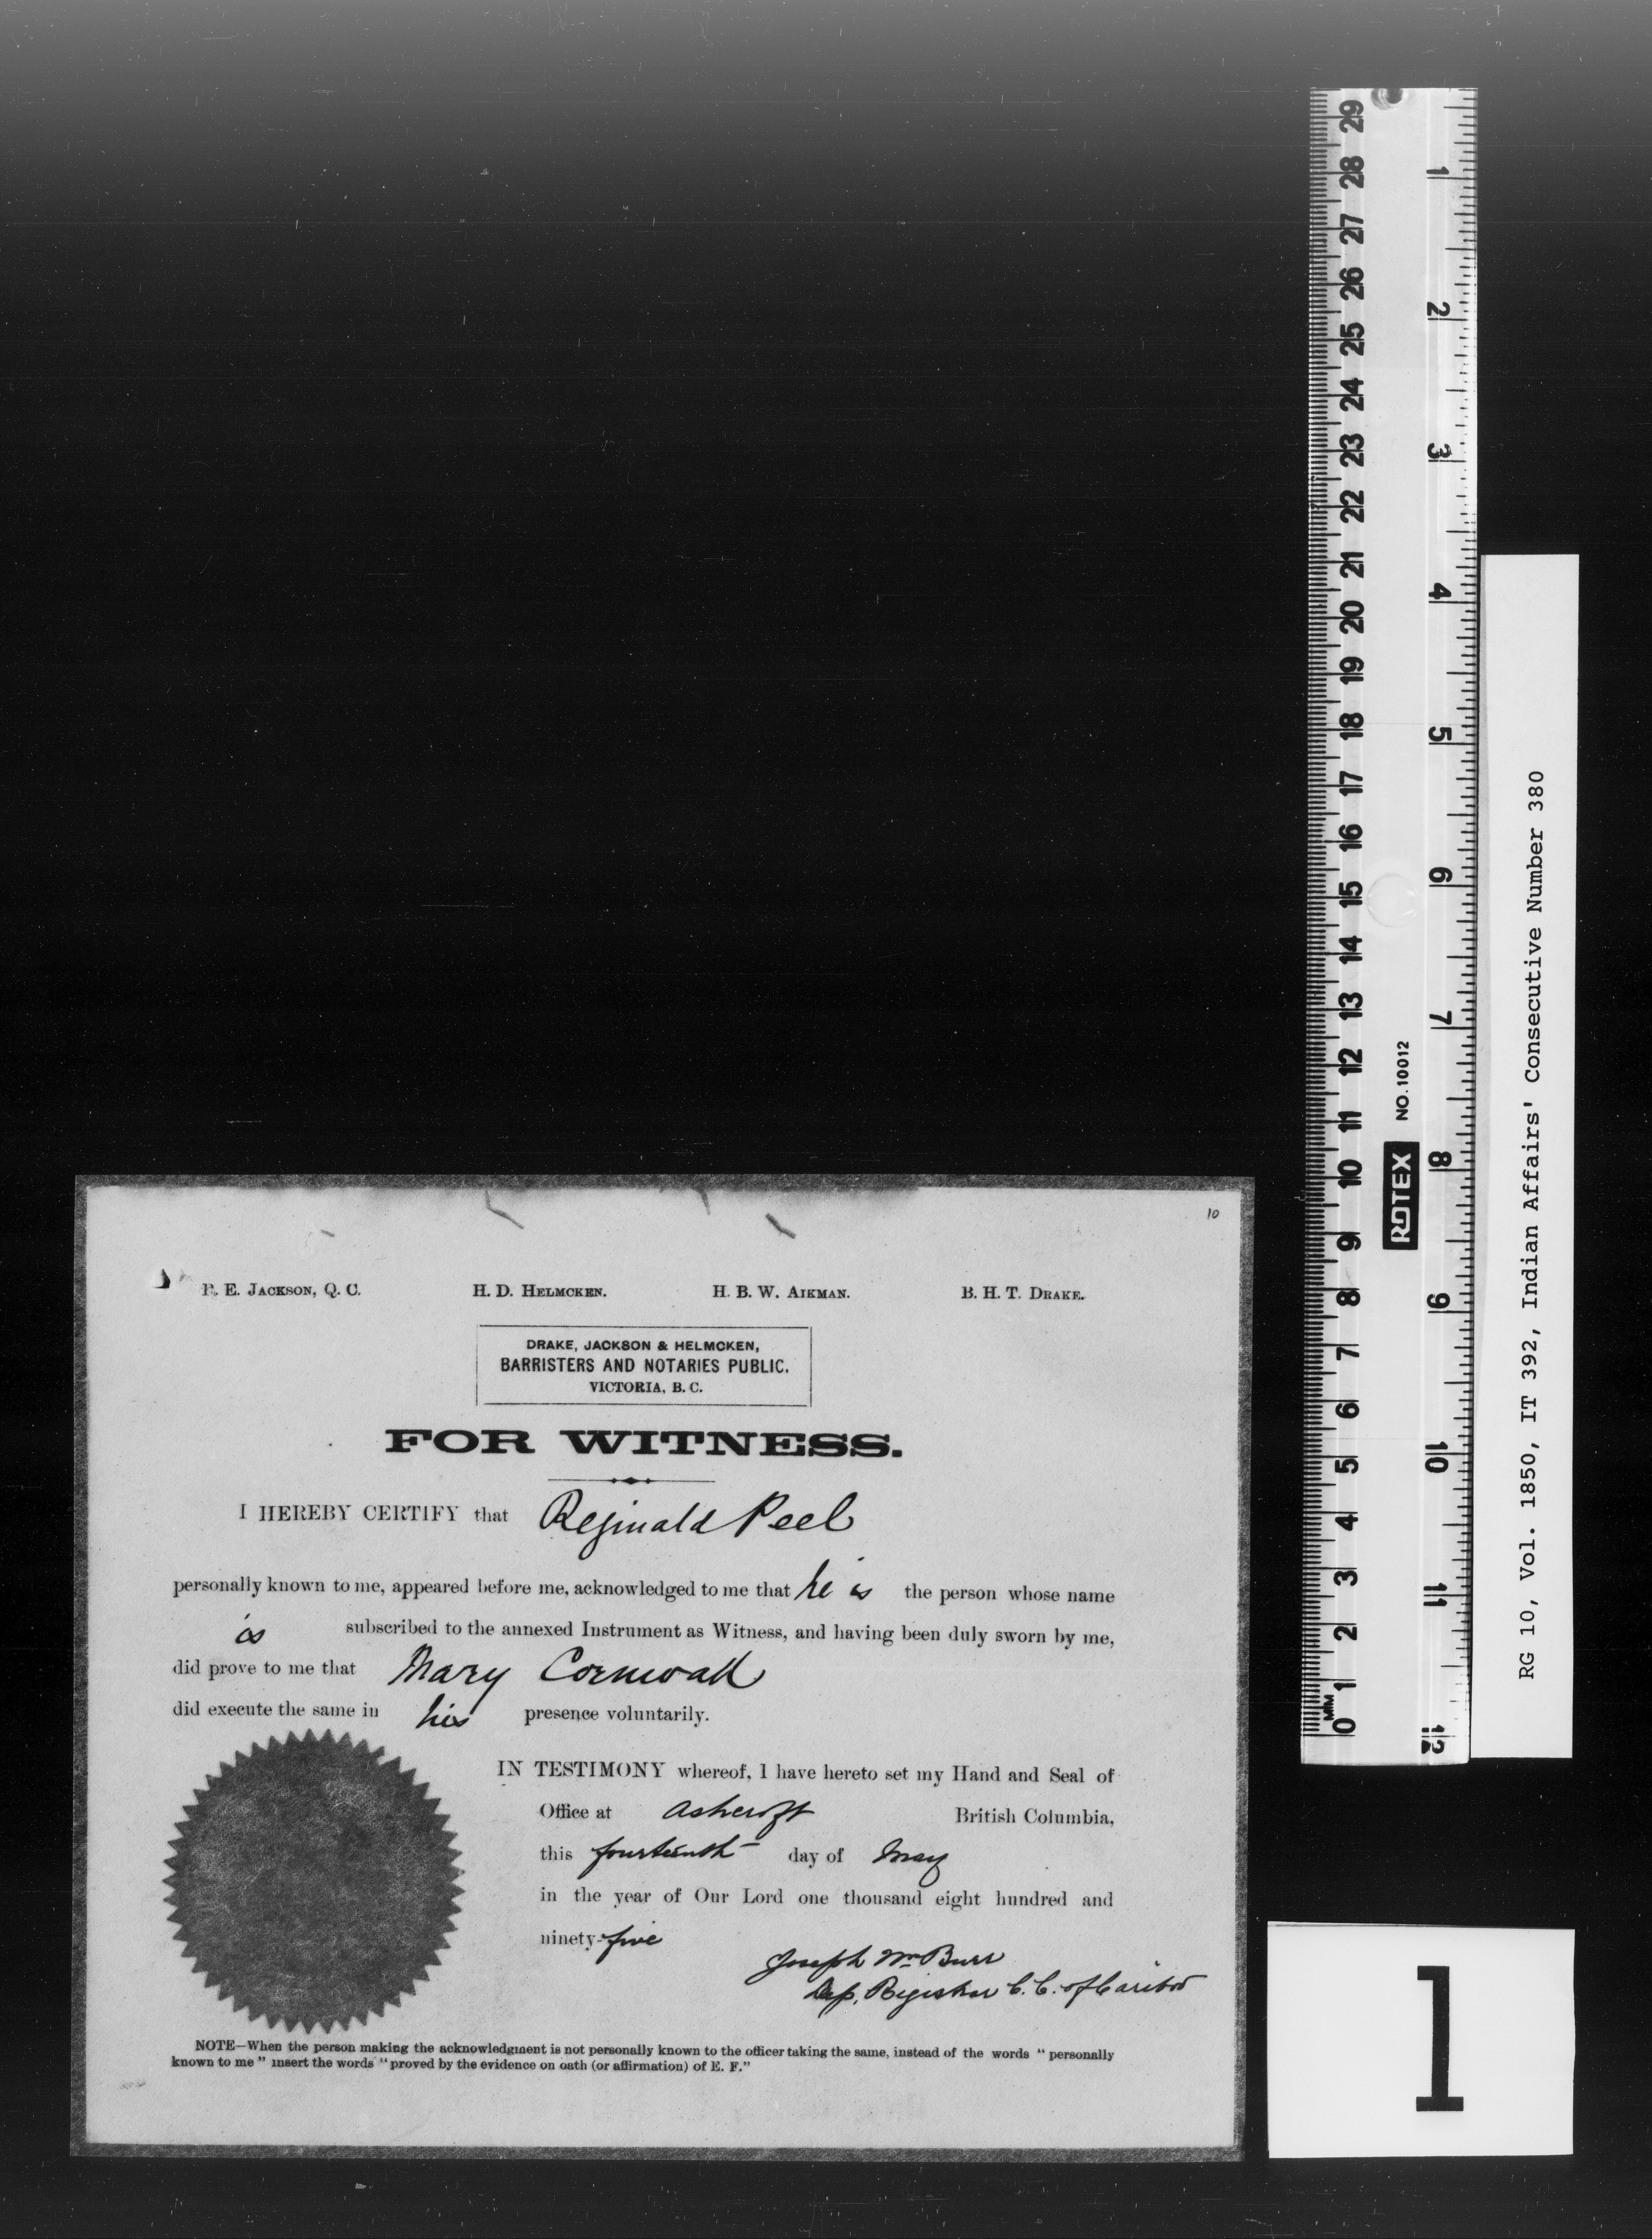 10
R. E. JACKSON, Q. C. H. D. HELMCKEN. H. B. W. AIKMAN. B. H. T. DRAKE.
DRAKE, JACKSON & HELMCKEN,
BARRISTERS AND NOTARIES PUBLIC.
VICTORIA, B. C.
FOR WITNESS.
I HEREBY CERTIFY that Reginald Peel
personally known to me, appeared before me, acknowledged to me that he is the person whose name
is subscribed to the annexed Instrument as Witness, and having been duly sworn by me,
did prove to me that Mary Cornwall
did execute the same in his presence voluntarily.
IN TESTIMONY whereof, I have hereto set my Hand and Seal of
Office at Ashcroft British Columbia,
this fourteenth day of May
in the year of Our Lord one thousand eight hundred and
ninety-five
Joseph Wm Burr
Dep. Registrar C. C. of Cariboo
NOTE—When the person making the acknowledgment is not personally known to the officer taking the same, instead of the words "personally
known to me" insert the words "proved by the evidence on oath (or affirmation) of E. F."
29 28 27 26 25 24 23 22 21 20 19 18 17 16 15 14 13 12 11 10 9 8 7 6 5 4 3 2 1 0
MM
ROTEX NO.10012
1 2 3 4 5 6 7 8 9 10 11 12
RG 10, Vol. 1850, IT 392, Indian Affairs' Consecutive Number 380
1